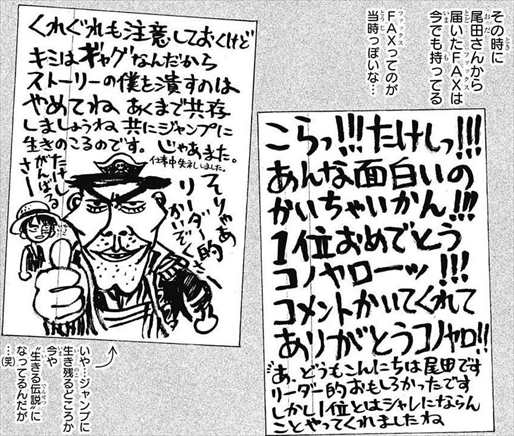 その時に
尾田さんから
届いたFAXは
今でも持ってる
FAXってのが
当時っぽいな…
こらっ!!!たけしっ!!!
あんな面白いの
かいちゃいかん!!!
1位おめでとう
コノヤローッ!!!
コメントかいてくれて
ありがとうコノヤロ!!
あ、どうもこんにちは尾田です
リーダー的おもしろかったです
しかし1位とはシャレにならん
ことやってくれましたね
くれぐれも注意しておくけど
キミはギャグなんだから
ストーリーの僕を潰すのは
やめてね あくまで共存
しましょうね 共にジャンプに
生きのこるのです。じゃあまた。
仕事中失礼しました。
そりゃあ
リーダー的
かいぞくさー
たけしも
がんばるさー
いや…ジャンプに
生き残るどころか
今や
“生きる伝説”に
なってるんだが
…(笑)